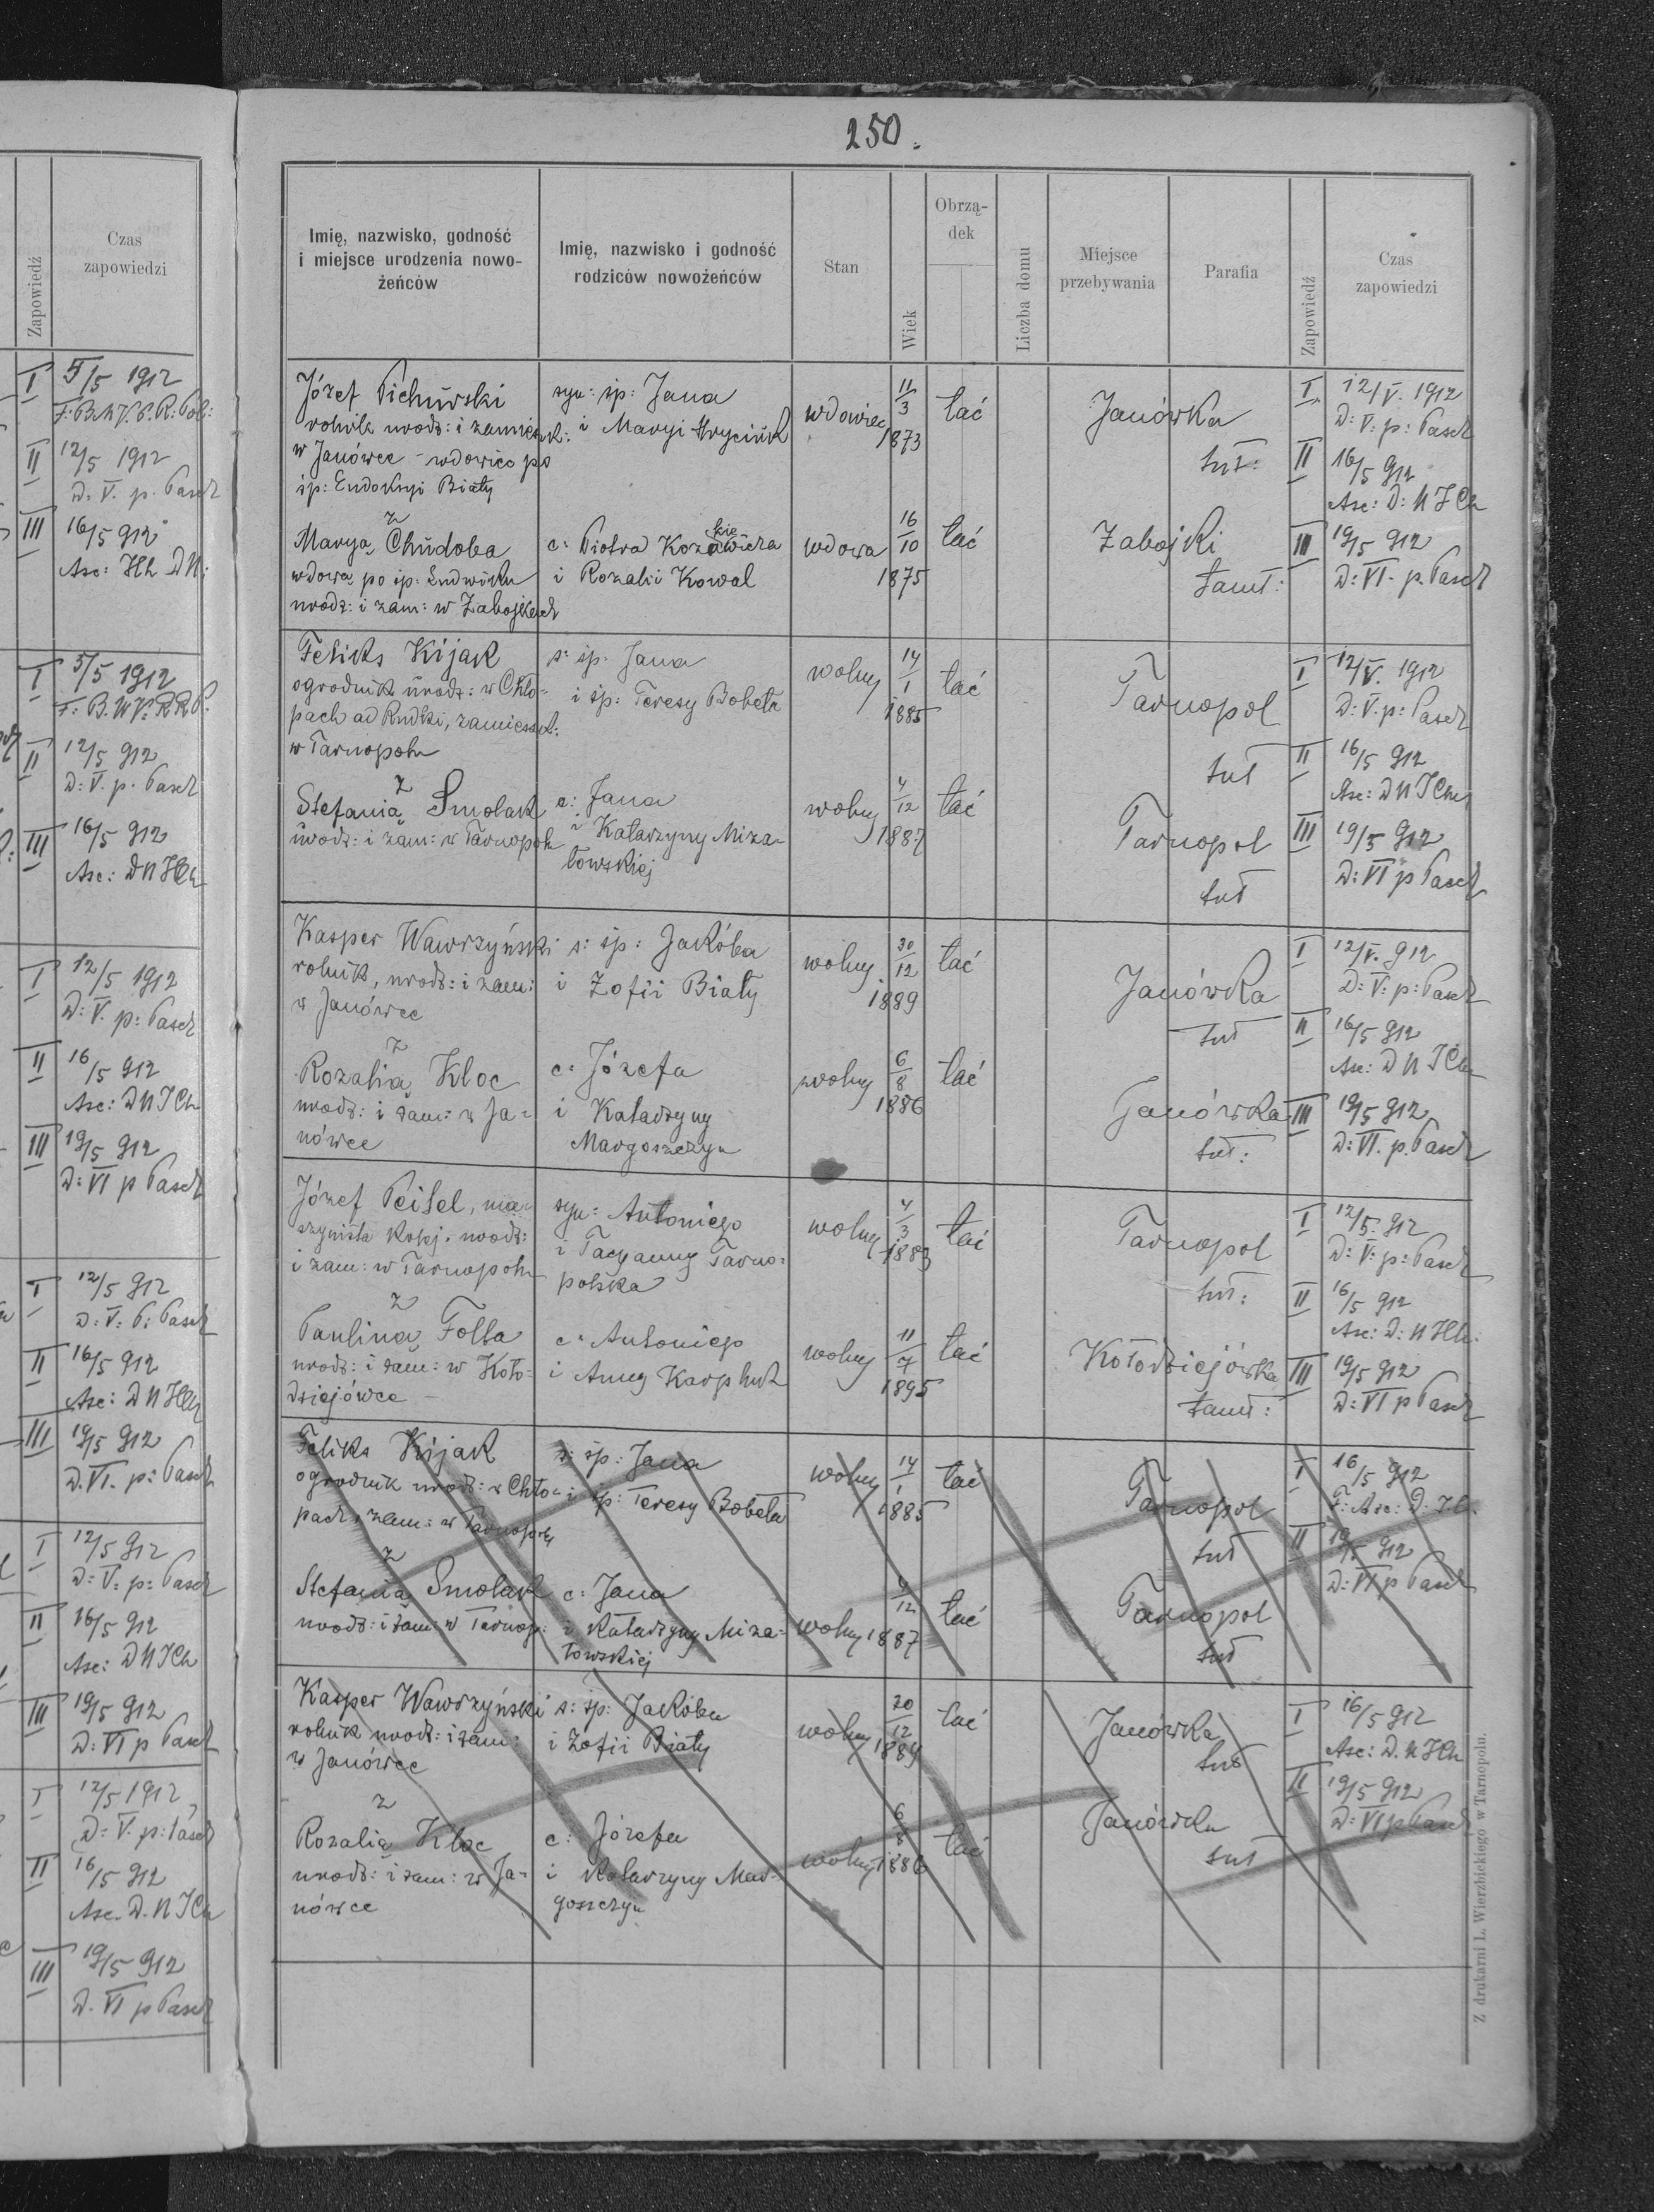 Czas
zapowiedzi
Zapowiedź
I 5/5 1912
II 12/5 1912
D: V. p. Pasch
III 16/5 912
Asc: D N
I 5/5 1912
II 12/5 912
D: V. p. Pasch
III 16/5 912
Asc: D N J Ch
I 12/5 1912
D: V. p: Pasch
II 16/5 912
Asc: D N J Ch
III 19/5 912
D: VI p Pasch
I 12/5 912
D: V: P: Pasch
II 16/5 912
Asc: D N J Ch
III 19/5 912
D. VI. p: Pasch
I 12/5 912
D: V: p: Pasch
II 16/5 912
Asc: D N J Ch
III 19/5 912
D: VI p Pasch
I 12/5 1912
D: V. p: Pasch
II 16/5 912
Asc. D. N J Ch
III 19/5 912
D. VI p Pasch
250.
Imię, nazwisko, godność
i miejsce urodzenia nowo-
żeńców
Imię, nazwisko i godność
rodziców nowożeńców
Stan
Wiek
Obrzą-
dek
Liczba domu
Miejsce
przebywania
Parafia
Zapowiedź
Czas
zapowiedzi
Józef Pichurski
rolnik urodz: i zamieszk:
w Janówce - wdowiec po
śp: Eudoksyi Biały
syn: śp: Jana
i Maryi Hryciuk
wdowiec
11/3
1873
łać
Janówka
tut:
I 12/V. 1912
D: V: p: Pasch
II 16/5 912
Asc: D: N J Ch
z
Marya Chudoba
wdowa po śp: Ludwiku
urodz: i zam: w Zabojkach
c: Piotra
i Rozalii Kowal
wdowa
16/10
1875
łać
Zabojki
tamt:
III 19/5 912
D: VI. p. Pasch
Feliks Kijak
ogrodnik urodz: w Chło-
pach ad Rudki, zamieszk:
w Tarnopolu
s: śp. Jana
i śp: Teresy Bobela
wolny
14/1
1885
łać
Tarnopol
tut
I 12/V. 1912
D: V. p: Pasch
II 16/5 912
Asc: D N J Ch
z
Stefanią Smolak
urodz: i zam: w Tarnopolu
c: Jana
i Katarzyny Miza-
łowskiej
wolny
4/12
1887
łać
Tarnopol
tut
III 19/5 912
D: VI p Pasch
Kasper Wawrzyński
rolnik, urodz: i zam:
w Janówce
s: śp: Jakóba
i Zofii Biały
wolny
30/12
1889
łać
Janówka
tut
I 12/V. 912
D: V: p: Pasch
II 16/5 912
Asc: D N J Ch
z
Rozalią Kloc
urodz: i zam: w Ja-
nówce
c: Józefa
i Katarzyny
Margoszczyn
wolny
6/8
1886
łać
Janówka
tut:
III 19/5 912
D: VI. p. Pasch
Józef Peisel, ma-
szynista kolej. urodz:
i zam: w Tarnopolu
syn: Antoniego
i Tacyanny Tarno-
polska
wolny
4/3
1883
łać
Tarnopol
tut:
I 12/5. 912
D: V: p: Pasch
II 16/5 912
Asc: D: N J Ch:
z
Pauliną Folta
urodz: i zam: w Koło-
dziejówce -
c: Antoniego
i Anny Karphut
wolny
11/7
1895
łać
Kołodziejówka
tamt:
III 19/5 912
D: VI p Pasch
Feliks Kijak
ogrodnik urodz: w Chło-
pach, zam: w Tarnopolu
s: śp: Jana
i śp: Teresy Bobela
wolny
14/1
1885
łać
Tarnopol
tut
I 16/5 912
F: Asc: D:
II 19/5 912
D: VI p Pasch
z
Stefanią Smolak
urodz: i zam: w Tarnop:
c: Jana
i Katarzyny Miza-
łowskiej
wolny
4/12
1887
łać
Tarnopol
tut
Kasper Wawrzyński
rolnik urodz: i zam:
w Janówce
s: śp: Jakóba
i Zofii Biały
wolny
20/12
1889
łać
Janówka
tut
I 16/5 912
Asc: D. N J Ch
II 19/5 912
D: VI p Pasch
z
Rozalią Kloc
urodz: i zam: w Ja-
nówce
c: Józefa
i Katarzyny Mar-
goszczyn
wolny
6/8
1886
łać
Janówka
tut
Z drukarni L. Wierzbickiego w Tarnopolu.